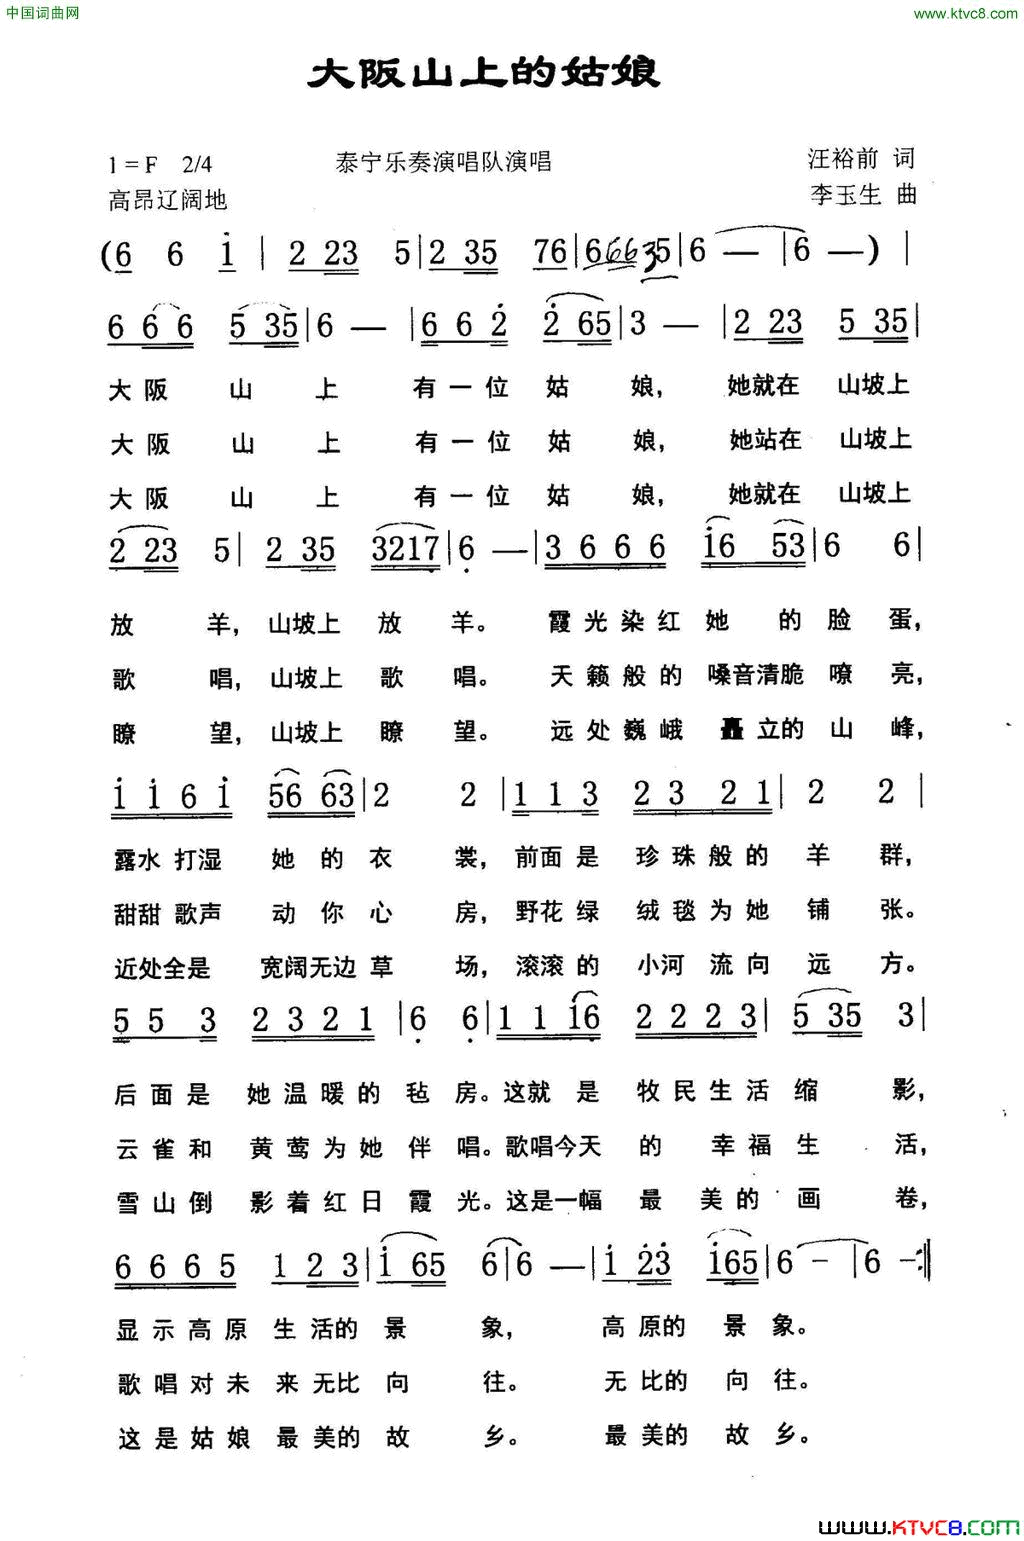 中国词曲网 www.ktvc8.com
大阪山上的姑娘
1=F 2/4 泰宁乐奏演唱队演唱 汪裕前 词
高昂辽阔地 李玉生 曲
(6 6 i | 2 23 5 | 2 35 76 | 6 66 35 | 6 — | 6 — ) |
6 6 6 5 35 | 6 — | 6 6 2 2 65 | 3 — | 2 23 5 35 |
大阪 山 上 有一位 姑 娘, 她就在 山坡上
大阪 山 上 有一位 姑 娘, 她站在 山坡上
大阪 山 上 有一位 姑 娘, 她就在 山坡上
2 23 5 | 2 35 3217 | 6 — | 3 6 6 6 i6 53 | 6 6 |
放 羊, 山坡上 放 羊。 霞光染红 她 的 脸 蛋,
歌 唱, 山坡上 歌 唱。 天籁般的 嗓音清脆 嘹 亮,
瞭 望, 山坡上 瞭 望。 远处巍峨 矗立的 山 峰,
i i 6 i 56 63 | 2 2 | 1 1 3 2 3 2 1 | 2 2 |
露水打湿 她 的 衣 裳, 前面是 珍珠般的 羊 群,
甜甜歌声 动 你 心 房, 野花绿 绒毯为她 铺 张。
近处全是 宽阔无边 草 场, 滚滚的 小河流向 远 方。
5 5 3 2 3 2 1 | 6 6 | 1 1 i6 2 2 2 3 | 5 35 3 |
后面是 她温暖的 毡 房。这就 是 牧民生活 缩 影,
云雀和 黄莺为她 伴 唱。歌唱今天 的 幸福生 活,
雪山倒 影着红日 霞 光。这是一幅 最 美的 画 卷,
6 6 6 5 1 2 3 | i 65 6 | 6 — | i 23 i65 | 6 - | 6 - :||
显示高原 生活的 景 象, 高原的 景 象。
歌唱对未 来无比 向 往。 无比的 向 往。
这是姑娘 最美的 故 乡。 最美的 故 乡。
www.KTVC8.COM